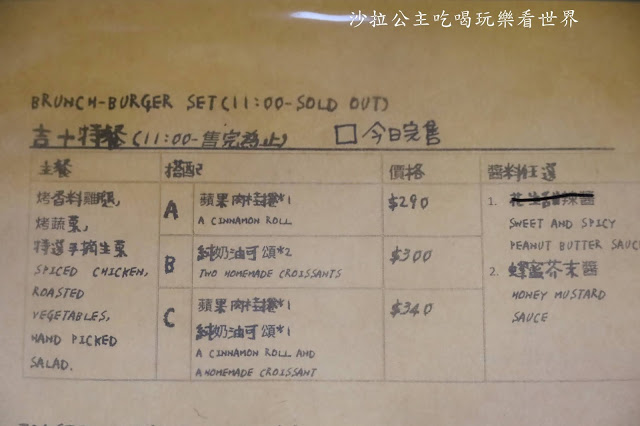 沙拉公主吃喝玩樂看世界
BRUNCH-BURGER SET(11:00-SOLD OUT)
吉十特餐(11:00-售完為止) □今日完售
主餐 搭配 價格 醬料任選
烤香料雞腿,
烤蔬菜,
特選手摘生菜
SPICED CHICKEN,
ROASTED
VEGETABLES,
HAND PICKED
SALAD.
A 蘋果肉桂捲*1 $290
A CINNAMON ROLL
B 純奶油可頌*2 $300
TWO HOMEMADE CROISSANTS
C 蘋果肉桂捲*1 $340
純奶油可頌*1
A CINNAMON ROLL AND
A HOMEMADE CROISSANT
1. 花生香辣醬
SWEET AND SPICY
PEANUT BUTTER SAUCE
2. 蜂蜜芥末醬
HONEY MUSTARD
SAUCE